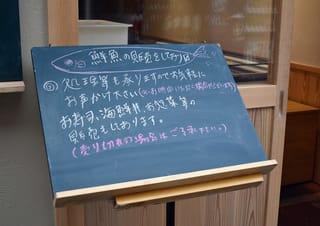 鮮魚の販売をしており〼
◎処理等も承りますので お気軽に
お声がけ下さい(※お時間いただく場合がございます)
お寿司、海鮮丼、お惣菜等の
販売もしております。
(売り切れの場合はご了承下さい。)